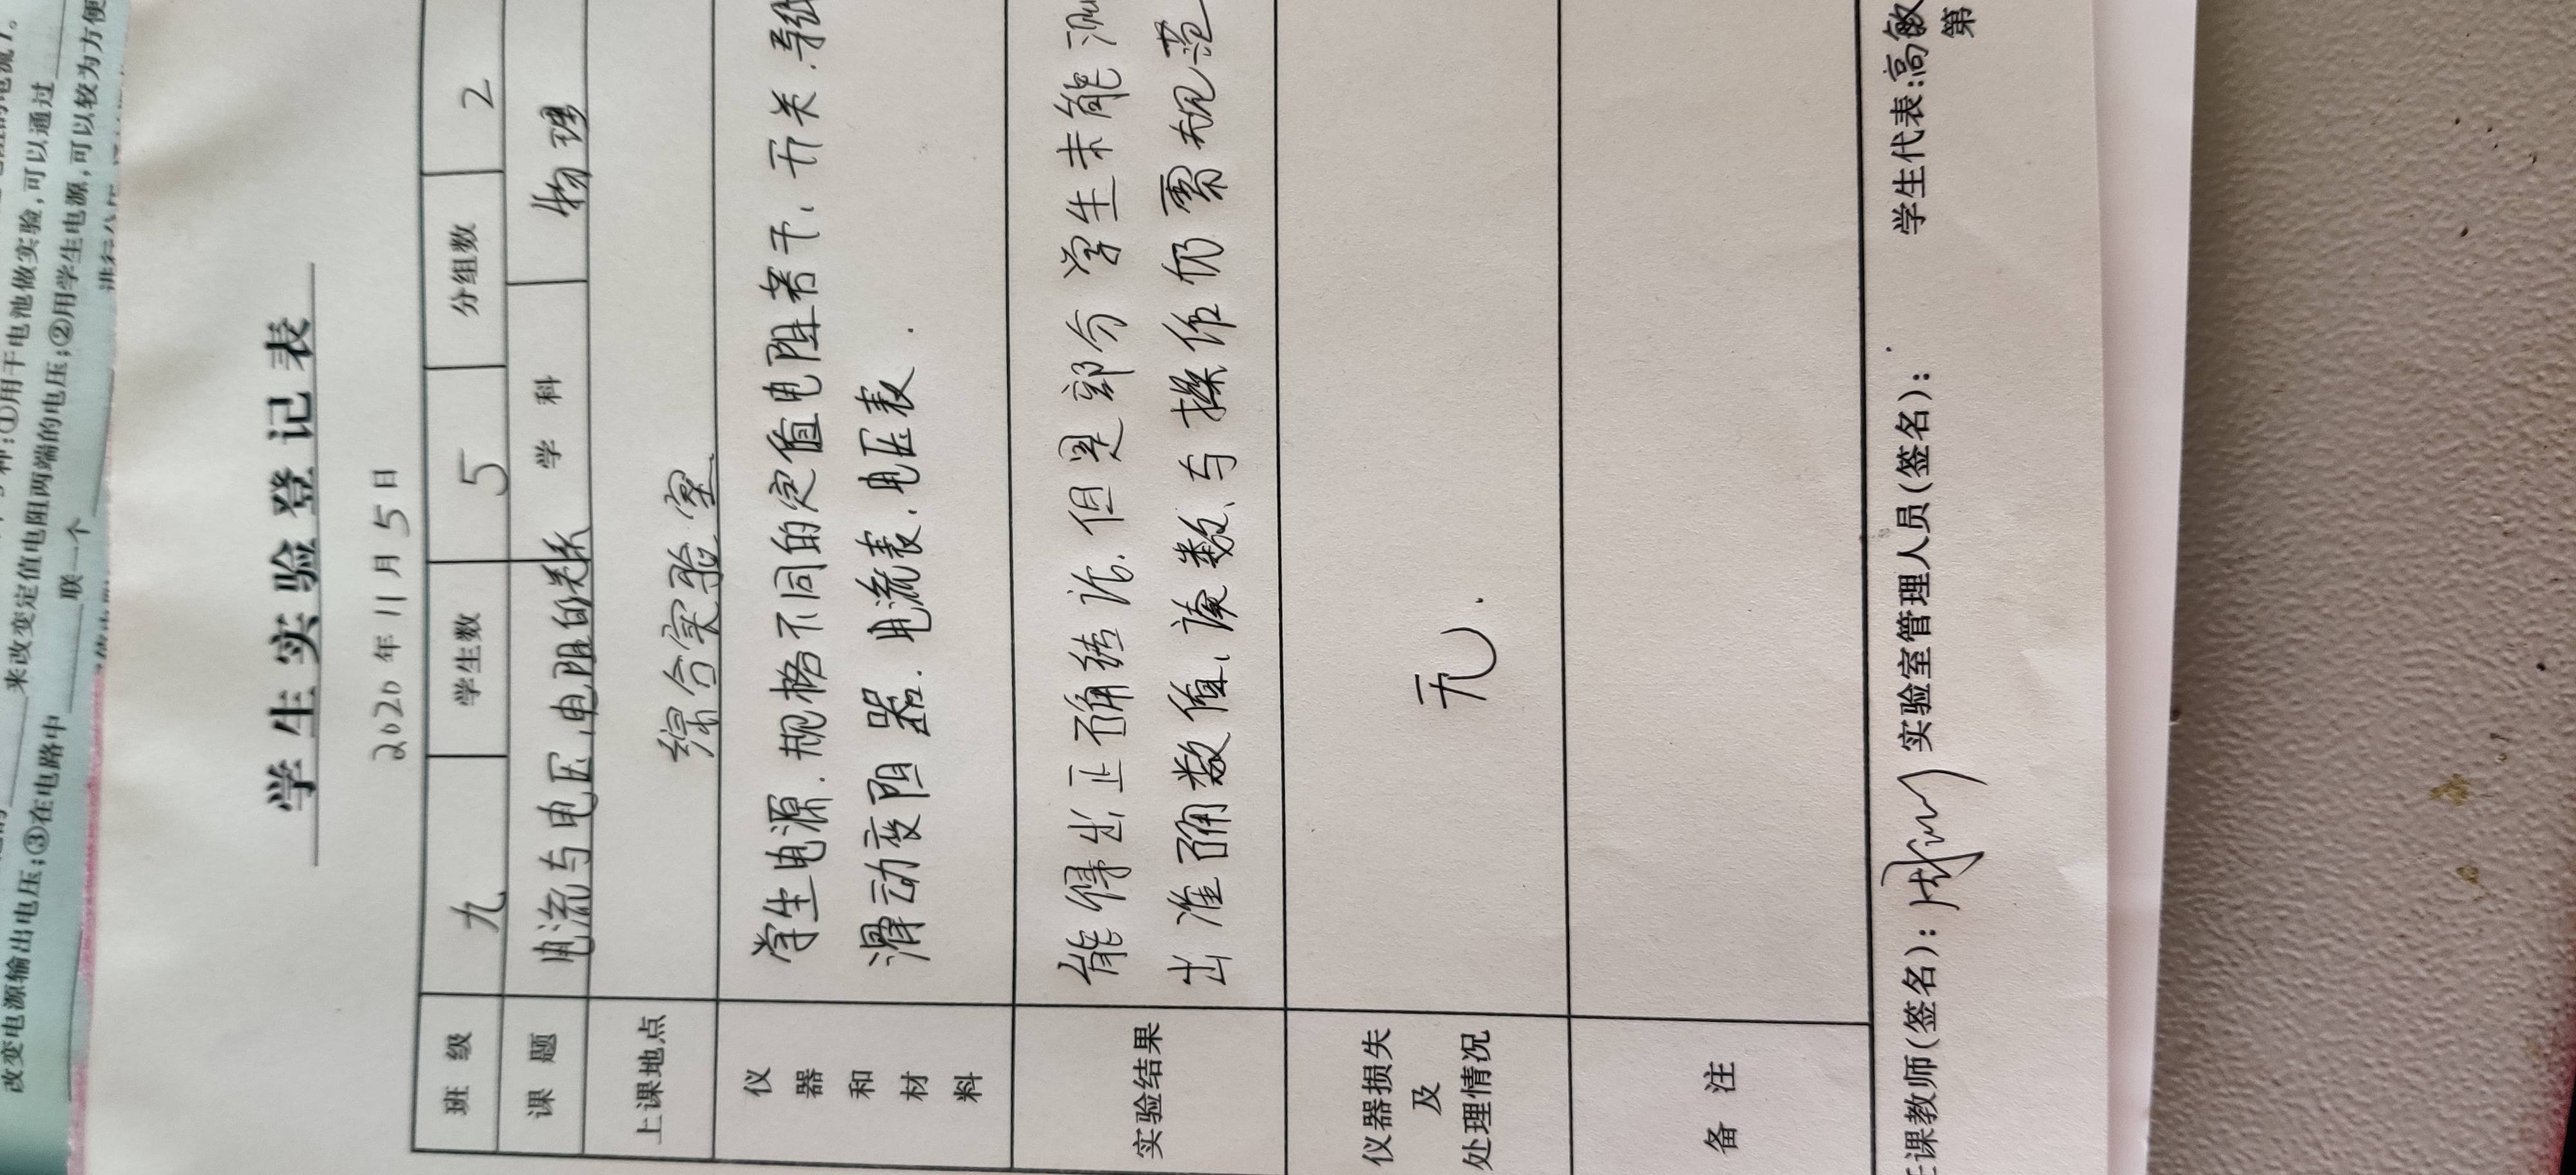 改变电源输出电压;③在电路中
联一个
来改变定值电阻两端的电压;②用学生电源,可以较为方便
:①用干电池做实验,可以通过
学生实验登记表
2020年11月5日
班级 九 学生数 5 分组数 2
课题 电流与电压,电阻的关系 学科 物理
上课地点 综合实验室
仪器和材料
学生电源.规格不同的定值电阻若干、开关.导线
滑动变阻器.电流表.电压表.
实验结果
能得出正确结论.但是部分学生未能测
出准确数值、读数、与操作仍需规范
仪器损失
及
处理情况
无.
备注
任课教师(签名): 实验室管理人员(签名): 学生代表:高敏
第